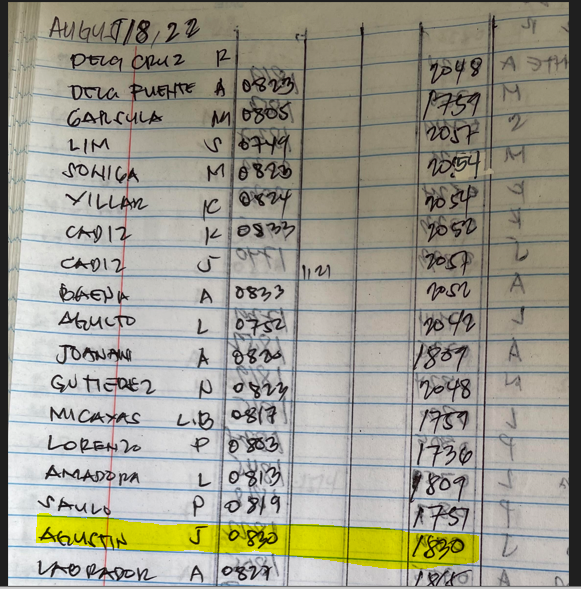 AUGUST 18, 22
DELA CRUZ R 2048
DELA PUENTE A 0823 1759
GARSULA M 0805 2057
LIM S 0749 2054
SONIGA M 0820 2054
VILLAR K 0824 2052
CADIZ K 0833 2057
CADIZ J 1121 2052
BAENA A 0833
AGULTO L 0752 2042
JOANAN A 0820 1809
GUTIEREZ N 0823 2048
MICAYAS L.B 0817 1759
LORENZO P 0803 1736
AMADORA L 0813 1809
SAULO P 0819 1757
AGUSTIN J 0830 1830
LABRADOR A 0827